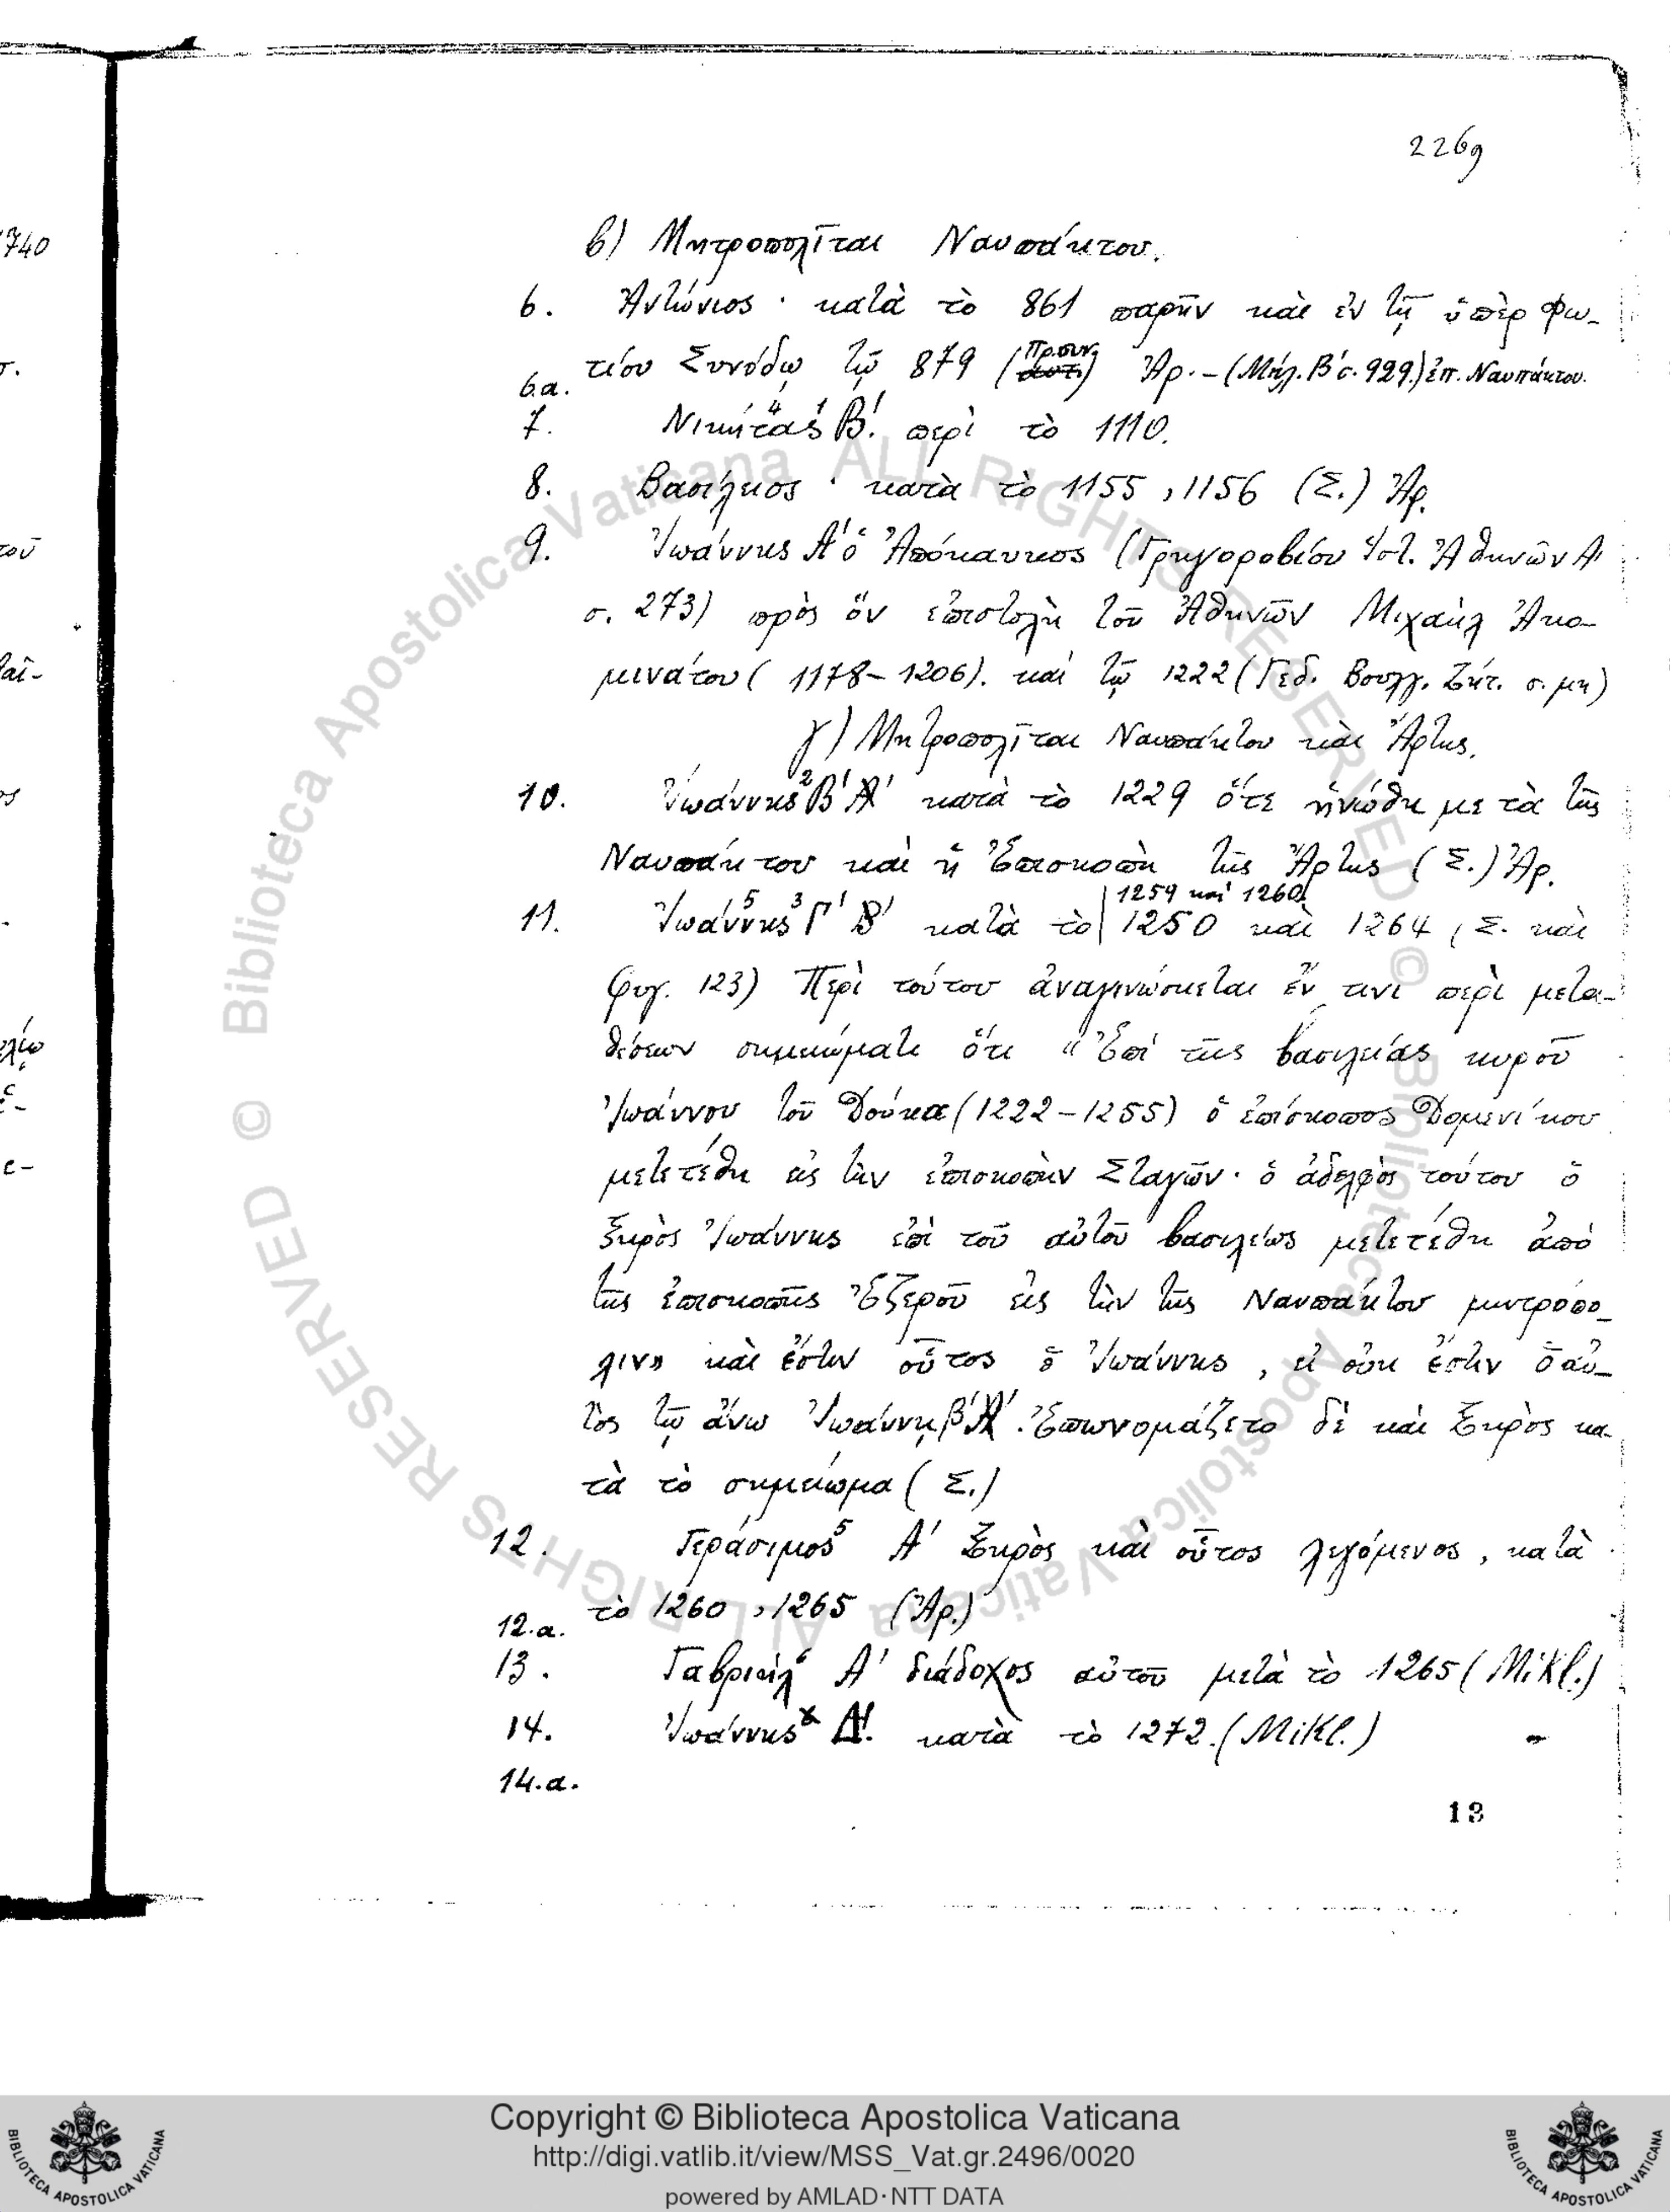 2269
740
β) Μητροπολῖται Ναυπάκτου.
6. Ἀντώνιος · κατὰ τὸ 861 παρῆν καὶ ἐν τῇ ὑπὲρ Φω-
τίου Συνόδῳ τῷ 879 (Πρ.συν.) Ἀρ. – (Μήλ. Β' σ. 929.) ἐπ. Ναυπάκτου.
6.α.
7. Νικήτας Β'. περὶ τὸ 1110.
8. Βασίλειος · κατὰ τὸ 1155, 1156 (Σ.) Ἀρ.
9. Ἰωάννης Α' ὁ Ἀπόκαυκος (Γρηγοροβίου Ἱστ. Ἀθηνῶν Α'
σ. 273) πρὸς ὅν ἐπιστολὴ τοῦ Ἀθηνῶν Μιχαὴλ Ἀκο-
μινάτου (1178–1206). καὶ τῷ 1222 (Γεδ. Βουλγ. Ζήτ. σ. μη)
γ) Μητροπολῖται Ναυπάκτου καὶ Ἄρτης.
10. Ἰωάννης² Β' Α' κατὰ τὸ 1229 ὅτε ἡνώθη μετὰ τῆς
Ναυπάκτου καὶ ἡ Ἐπισκοπὴ τῆς Ἄρτης (Σ.) Ἀρ.
1259 καὶ 1260
11. Ἰωάννης³ Γ' Β' κατὰ τὸ 1250 καὶ 1264, Σ. καὶ
φυλ. 123) Περὶ τούτου ἀναγινώσκεται ἔν τινι περὶ μετα-
θέσεων σημειώματι ὅτι "Ἐπὶ τῆς βασιλείας κυροῦ
Ἰωάννου τοῦ Δούκα (1222–1255) ὁ ἐπίσκοπος Δομενίκου
μετετέθη εἰς τὴν ἐπισκοπὴν Σταγῶν· ὁ ἀδελφὸς τούτου ὁ
Ξηρὸς Ἰωάννης ἐπὶ τοῦ αὐτοῦ βασιλέως μετετέθη ἀπὸ
τῆς ἐπισκοπῆς Ἐζεροῦ εἰς τὴν τῆς Ναυπάκτου μητρόπο-
λιν» καὶ ἔστιν οὗτος ὁ Ἰωάννης, εἰ οὐκ ἔστιν ὁ αὐ-
τὸς τῷ ἄνω Ἰωάννῃ Β' Α'. Ἐπωνομάζετο δὲ καὶ Ξηρὸς κα-
τὰ τὸ σημείωμα (Σ.)
12. Γεράσιμος⁵ Α' Ξηρὸς καὶ οὗτος λεγόμενος, κατὰ
τὸ 1260, 1265 (Ἀρ.)
12.α.
13. Γαβριὴλ⁶ Α' διάδοχος αὐτοῦ μετὰ τὸ 1265 (Mikl.)
14. Ἰωάννης Δ'. κατὰ τὸ 1272. (Mikl.)
14.α.
13
Copyright © Biblioteca Apostolica Vaticana
http://digi.vatlib.it/view/MSS_Vat.gr.2496/0020
powered by AMLAD·NTT DATA
BIBLIOTECA APOSTOLICA VATICANA
BIBLIOTECA APOSTOLICA VATICANA
© Biblioteca Apostolica Vaticana ALL RIGHTS RESERVED © Biblioteca Apostolica Vaticana ALL RIGHTS RESERVED